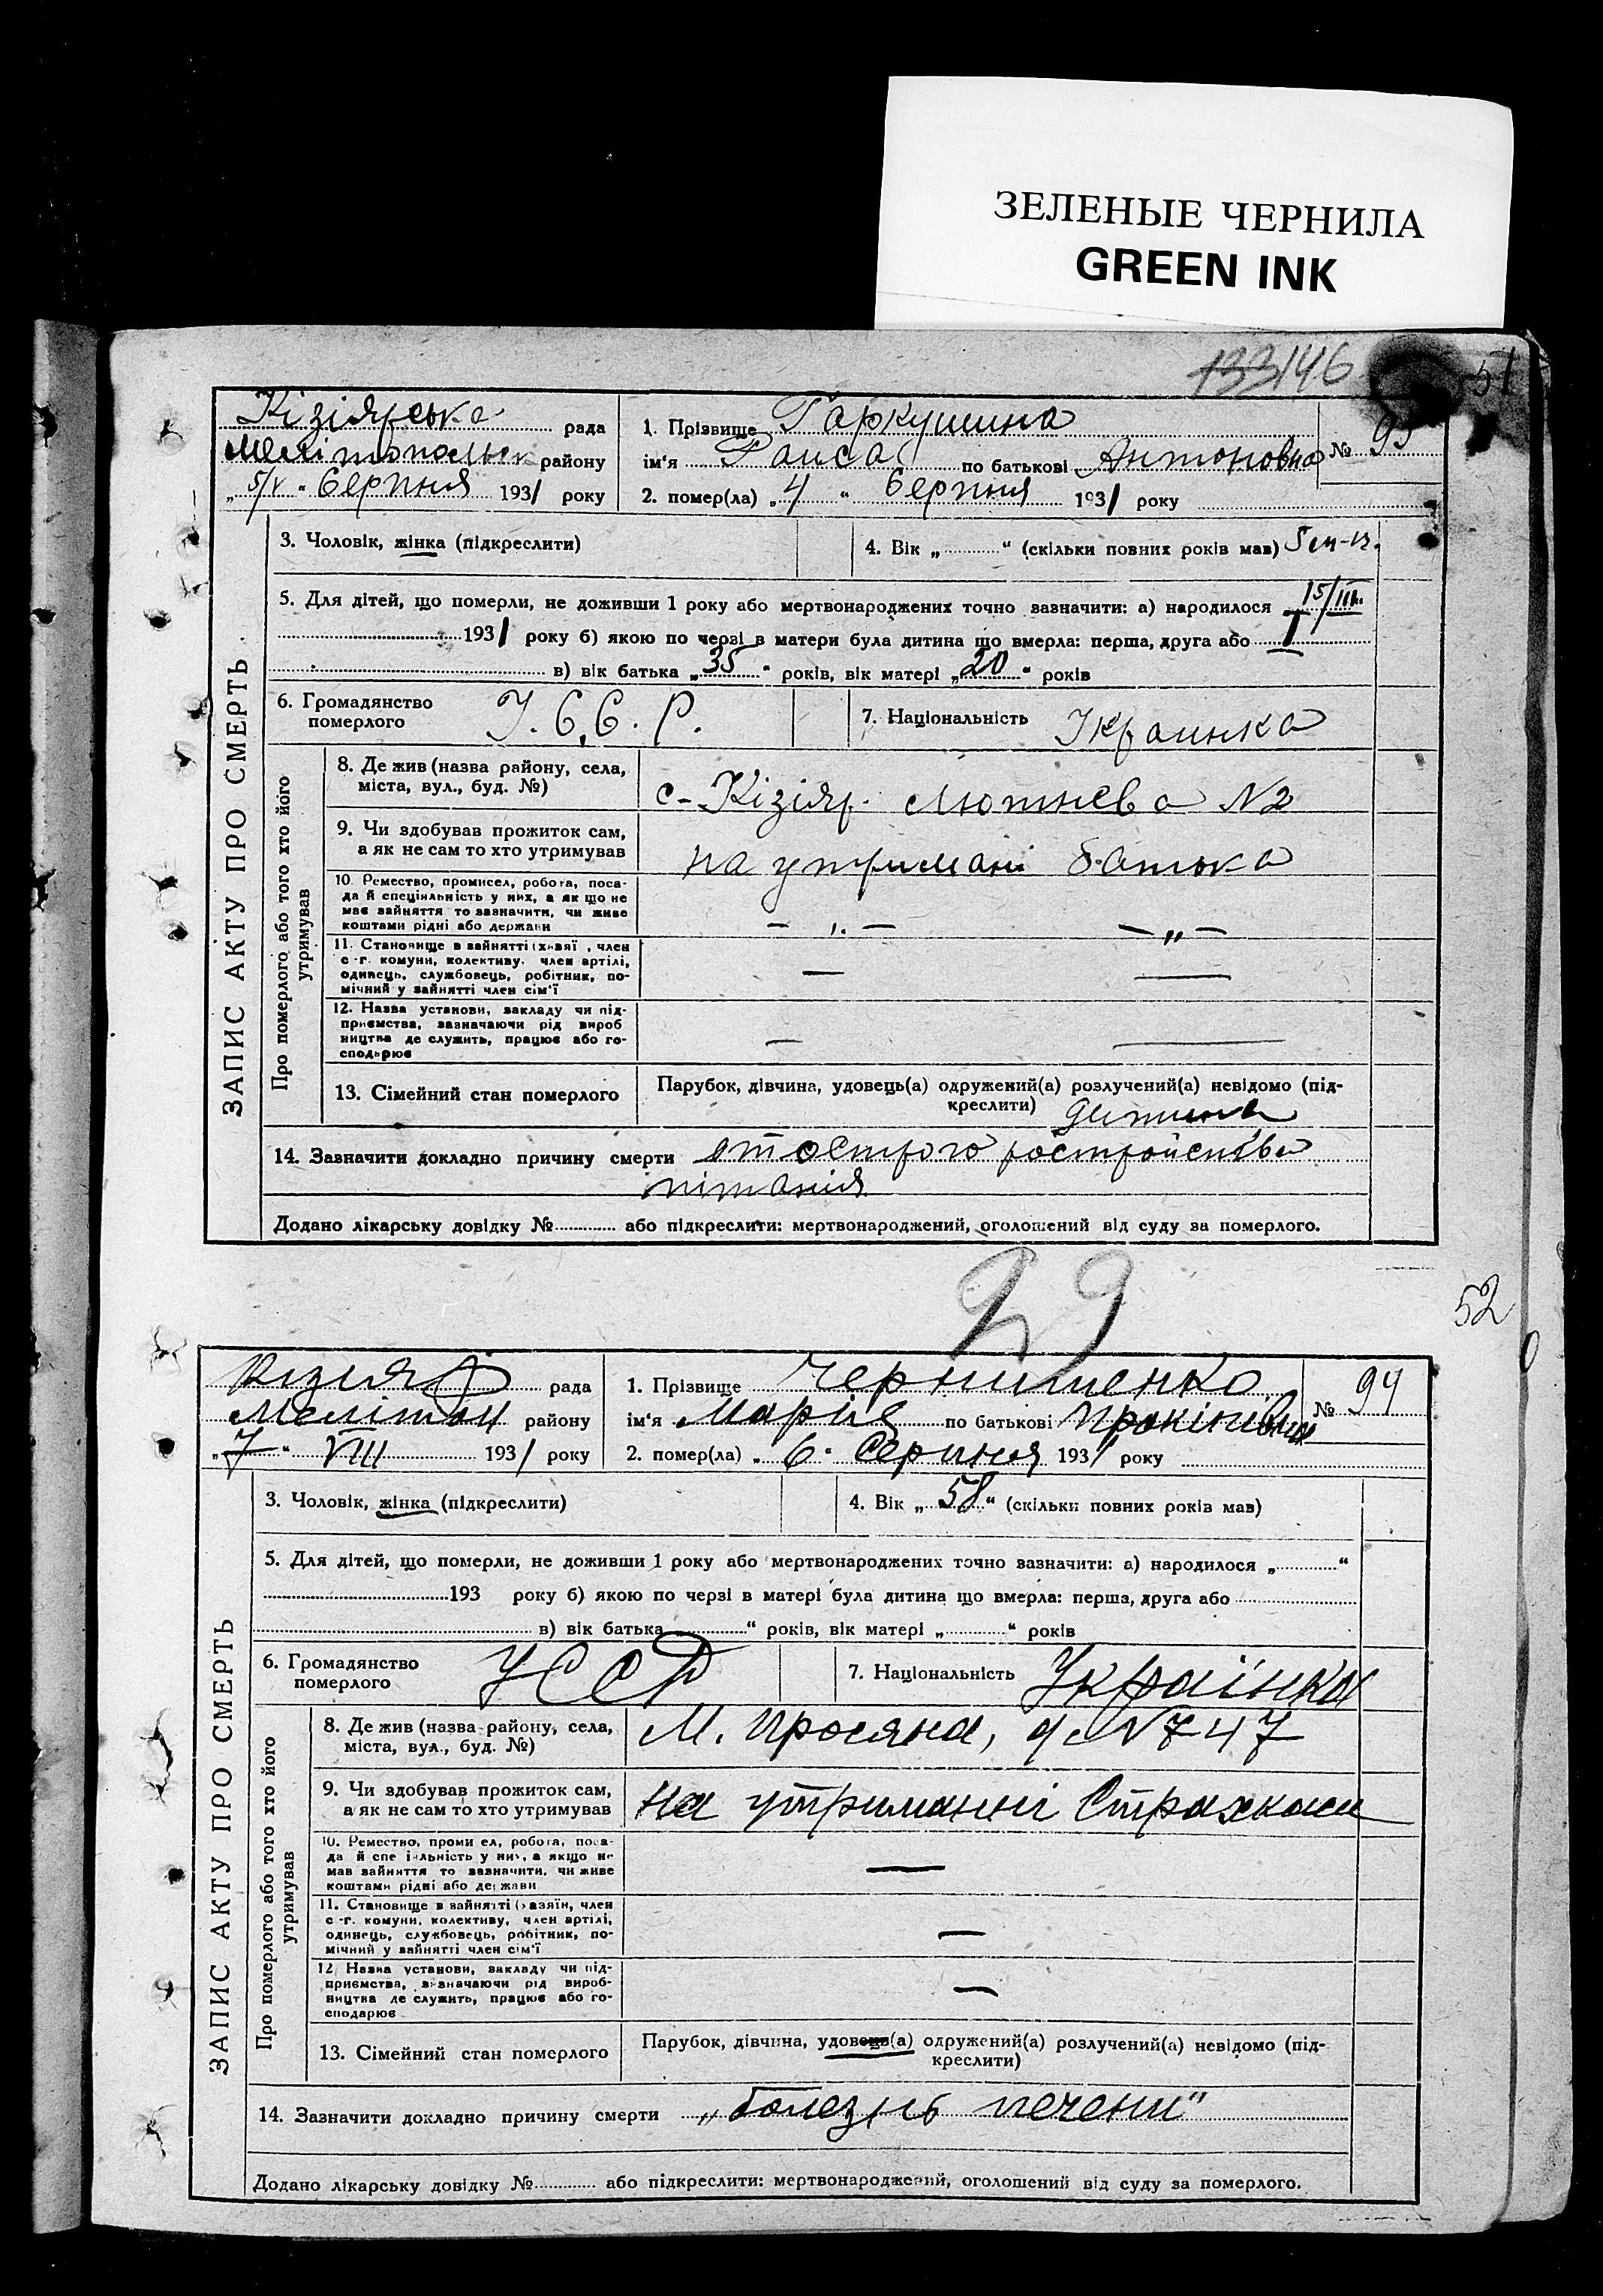 ЗЕЛЕНЫЕ ЧЕРНИЛА
GREEN INK
133 146
51
Кізіярська рада
Мелітопольськ району
„ 5/V “ Серпня 1931 року
1. Прізвище Гаркушина
ім'я Раиса по батькові Антоновна
№ 93
2. помер(ла) „ 4 “ Серпня 1931 року
ЗАПИС АКТУ ПРО СМЕРТЬ
3. Чоловік, жінка (підкреслити)
4. Вік „ “ (скільки повних років мав) 5 м-ц.
5. Для дітей, що померли, не доживши 1 року або мертвонароджених точно зазначити: а) народилося 15/III
1931 року б) якою по черзі в матери була дитина що вмерла: перша, друга або I
в) вік батька „ 35 “ років, вік матері „ 20 “ років
6. Громадянство
померлого
У.С.С.Р.
7. Національність Украинка
Про померлого або того хто його
утримував
8. Де жив (назва району, села,
міста, вул., буд. №)
с-Кізіяр. Лютнева N2
9. Чи здобував прожиток сам,
а як не сам то хто утримував
на утримані батька
10. Ремество, промисел, робота, поса-
да й спеціяльність у них, а як що не
мав зайняття то зазначити, чи живе
коштами рідні або держави
— „ —
— „ —
11. Становище в зайнятті (хазяї , член
с -г. комуни, колективу. член артілі,
одинець, службовець, робітник, по-
мічний у зайнятті член сім'ї
—
—
12. Назва установи, закладу чи під-
приємства, зазначаючи рід вироб
ництва де служить, працює або го-
сподарює
—
—
13. Сімейний стан померлого
Парубок, дівчина, удовець(а) одружений(а) розлучений(а) невідомо (під-
креслити) дитина
14. Зазначити докладно причину смерти от острого ростройства
пітанія
Додано лікарську довідку № або підкреслити: мертвонароджений, оголошений від суду за померлого.
29
52
Кізіяр рада
Меліток району
„ 7 “ VIII 1931 року
1. Прізвище Чернишенко
ім'я Марія по батькові
№ 94
2. помер(ла) „ 6 “ Серпня 1931 року
ЗАПИС АКТУ ПРО СМЕРТЬ
3. Чоловік, жінка (підкреслити)
4. Вік „ 58 “ (скільки повних років мав)
5. Для дітей, що померли, не доживши 1 року або мертвонароджених точно зазначити: а) народилося „ “
193 року б) якою по черзі в матері була дитина що вмерла: перша, друга або
в) вік батька “ років, вік матері „ “ років
6. Громадянство
померлого
УССР
7. Національність Українка
Про померлого або того хто його
утримував
8. Де жив (назва району, села,
міста, вул., буд. №)
М. Просяна, д N 747
9. Чи здобував прожиток сам,
а як не сам то хто утримував
на утриманні Страхкаси
10. Ремество, проми ел, робота, поса-
да й спе іяльність у них, а якщо не
мав зайняття то зазначити, чи живе
коштами рідні або держави
—
11. Становище в зайнятті (хазяїн, член
с -г. комуни, колективу, член артілі,
одинець, службовець, робітник, по-
мічний у зайнятті член сім'ї
—
12. Назва установи, закладу чи під-
приємства, зазначаючи рід вироб-
ництва де служить, працює або го-
сподарює
—
13. Сімейний стан померлого
Парубок, дівчина, удовець(а) одружений(а) розлучений(а) невідомо (під-
креслити)
14. Зазначити докладно причину смерти „болезнь печени“
Додано лікарську довідку № або підкреслити: мертвонароджений, оголошений від суду за померлого.